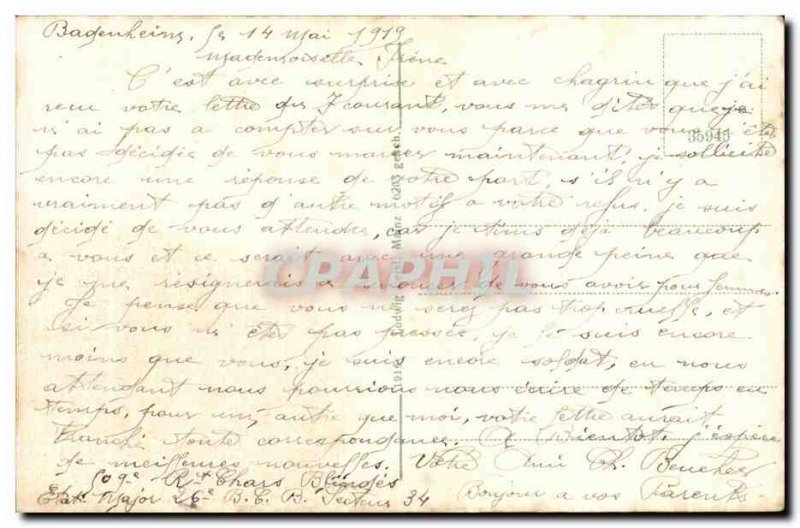 Badenheim, le 14 Mai 1919
Mademoiselle Irène
C'est avec surprise et avec chagrin que j'ai
reçu votre lettre du 7 courant, vous me dites que je
n'ai pas a compter sur vous parce que vous n'êtes
pas décidée de vous marier maintenant, je sollicite
encore une réponse de votre part, s'il n'y a
vraiment pas d'autre motif a votre refus, je suis
décidé de vous attendre, car je tiens déja beaucoup
a vous et ce serait avec une grande peine que
je me résignerais a renoncer de vous avoir pour femme.
Je pense que vous ne serez pas trop cruelle, et
si vous n'êtes pas pressée, je le suis encore
moins que vous, je suis encore soldat, en nous
attendant nous pourrions nous écrire de temps en
temps, pour un autre que moi, votre lettre aurait
tranché toute correspondance. A bientot, j'espère
de meilleures nouvelles. Votre Ami Ch.
509e Rt Chars Blindés
Etat Major 26e B.C.B. Secteur 34 Bonjour a vos Parents.
35945
Ludwig Mainz 6203 gesch.
1916
CPAPHIL